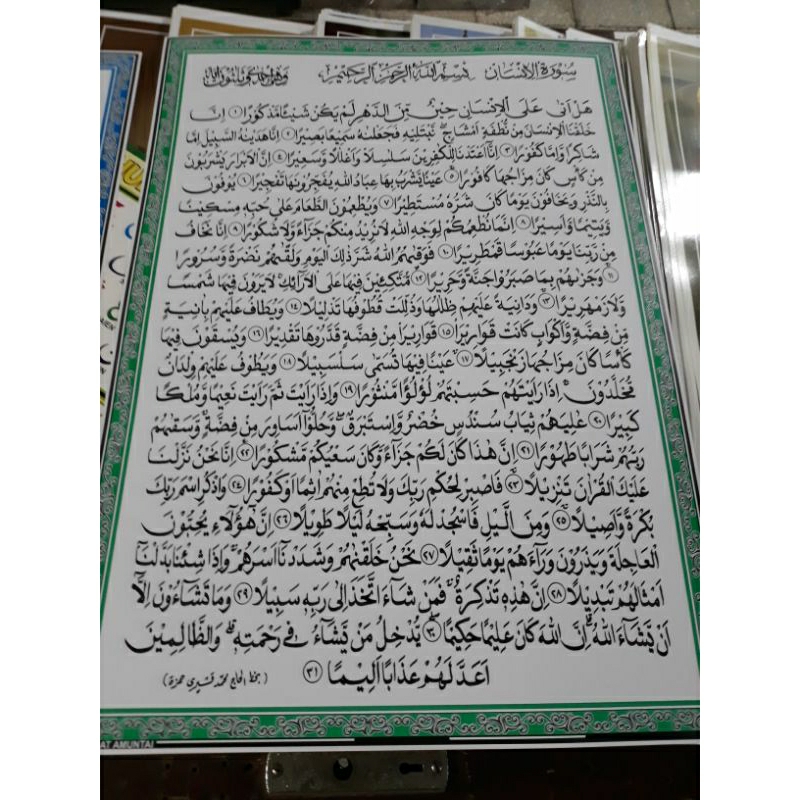 سُورَةُ الْإِنْسَانِ بِسْمِ اللهِ الرَّحْمٰنِ الرَّحِيْمِ وَهِيَ اِحْدٰى وَثَلَاثُوْنَ اٰيَةً
هَلْ اَتٰى عَلَى الْاِنْسَانِ حِيْنٌ مِّنَ الدَّهْرِ لَمْ يَكُنْ شَيْـًٔا مَّذْكُوْرًا ۝١ اِنَّا
خَلَقْنَا الْاِنْسَانَ مِنْ نُّطْفَةٍ اَمْشَاجٍ نَّبْتَلِيْهِ فَجَعَلْنٰهُ سَمِيْعًا بَصِيْرًا ۝٢ اِنَّا هَدَيْنٰهُ السَّبِيْلَ اِمَّا
شَاكِرًا وَّاِمَّا كَفُوْرًا ۝٣ اِنَّآ اَعْتَدْنَا لِلْكٰفِرِيْنَ سَلٰسِلَا وَاَغْلٰلًا وَّسَعِيْرًا ۝٤ اِنَّ الْاَبْرَارَ يَشْرَبُوْنَ
مِنْ كَأْسٍ كَانَ مِزَاجُهَا كَافُوْرًا ۝٥ عَيْنًا يَّشْرَبُ بِهَا عِبَادُ اللهِ يُفَجِّرُوْنَهَا تَفْجِيْرًا ۝٦ يُوْفُوْنَ
بِالنَّذْرِ وَيَخَافُوْنَ يَوْمًا كَانَ شَرُّهُ مُسْتَطِيْرًا ۝٧ وَيُطْعِمُوْنَ الطَّعَامَ عَلٰى حُبِّهٖ مِسْكِيْنًا
وَّيَتِيْمًا وَّاَسِيْرًا ۝٨ اِنَّمَا نُطْعِمُكُمْ لِوَجْهِ اللهِ لَا نُرِيْدُ مِنْكُمْ جَزَآءً وَّلَا شُكُوْرًا ۝٩ اِنَّا نَخَافُ
مِنْ رَّبِّنَا يَوْمًا عَبُوْسًا قَمْطَرِيْرًا ۝١٠ فَوَقٰىهُمُ اللهُ شَرَّ ذٰلِكَ الْيَوْمِ وَلَقّٰىهُمْ نَضْرَةً وَّسُرُوْرًا
۝١١ وَجَزٰىهُمْ بِمَا صَبَرُوْا جَنَّةً وَّحَرِيْرًا ۝١٢ مُّتَّكِـِٕيْنَ فِيْهَا عَلَى الْاَرَآئِكِ لَا يَرَوْنَ فِيْهَا شَمْسًا
وَّلَا زَمْهَرِيْرًا ۝١٣ وَدَانِيَةً عَلَيْهِمْ ظِلٰلُهَا وَذُلِّلَتْ قُطُوْفُهَا تَذْلِيْلًا ۝١٤ وَيُطَافُ عَلَيْهِمْ بِاٰنِيَةٍ
مِّنْ فِضَّةٍ وَّاَكْوَابٍ كَانَتْ قَوَارِيْرَا۠ ۝١٥ قَوَارِيْرَا۟ مِنْ فِضَّةٍ قَدَّرُوْهَا تَقْدِيْرًا ۝١٦ وَيُسْقَوْنَ فِيْهَا
كَأْسًا كَانَ مِزَاجُهَا زَنْجَبِيْلًا ۝١٧ عَيْنًا فِيْهَا تُسَمّٰى سَلْسَبِيْلًا ۝١٨ وَيَطُوْفُ عَلَيْهِمْ وِلْدَانٌ
مُّخَلَّدُوْنَ اِذَا رَاَيْتَهُمْ حَسِبْتَهُمْ لُؤْلُؤًا مَّنْثُوْرًا ۝١٩ وَاِذَا رَاَيْتَ ثَمَّ رَاَيْتَ نَعِيْمًا وَّمُلْكًا
كَبِيْرًا ۝٢٠ عٰلِيَهُمْ ثِيَابُ سُنْدُسٍ خُضْرٌ وَّاِسْتَبْرَقٌ وَّحُلُّوْٓا اَسَاوِرَ مِنْ فِضَّةٍ وَسَقٰىهُمْ
رَبُّهُمْ شَرَابًا طَهُوْرًا ۝٢١ اِنَّ هٰذَا كَانَ لَكُمْ جَزَآءً وَّكَانَ سَعْيُكُمْ مَّشْكُوْرًا ۝٢٢ اِنَّا نَحْنُ نَزَّلْنَا
عَلَيْكَ الْقُرْاٰنَ تَنْزِيْلًا ۝٢٣ فَاصْبِرْ لِحُكْمِ رَبِّكَ وَلَا تُطِعْ مِنْهُمْ اٰثِمًا اَوْ كَفُوْرًا ۝٢٤ وَاذْكُرِ اسْمَ رَبِّكَ
بُكْرَةً وَّاَصِيْلًا ۝٢٥ وَمِنَ الَّيْلِ فَاسْجُدْ لَهٗ وَسَبِّحْهُ لَيْلًا طَوِيْلًا ۝٢٦ اِنَّ هٰٓؤُلَآءِ يُحِبُّوْنَ
الْعَاجِلَةَ وَيَذَرُوْنَ وَرَآءَهُمْ يَوْمًا ثَقِيْلًا ۝٢٧ نَحْنُ خَلَقْنٰهُمْ وَشَدَدْنَآ اَسْرَهُمْ وَاِذَا شِئْنَا بَدَّلْنَآ
اَمْثَالَهُمْ تَبْدِيْلًا ۝٢٨ اِنَّ هٰذِهٖ تَذْكِرَةٌ فَمَنْ شَآءَ اتَّخَذَ اِلٰى رَبِّهٖ سَبِيْلًا ۝٢٩ وَمَا تَشَآءُوْنَ اِلَّآ
اَنْ يَّشَآءَ اللهُ اِنَّ اللهَ كَانَ عَلِيْمًا حَكِيْمًا ۝٣٠ يُّدْخِلُ مَنْ يَّشَآءُ فِيْ رَحْمَتِهٖ وَالظّٰلِمِيْنَ
اَعَدَّ لَهُمْ عَذَابًا اَلِيْمًا ۝٣١ (بخط الحاج محمد قشيري حمزة)
AT AMUNTAI